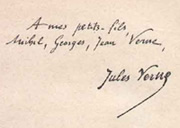 A mes petits-fils
Michel, Georges, Jean Verne,
Jules Verne